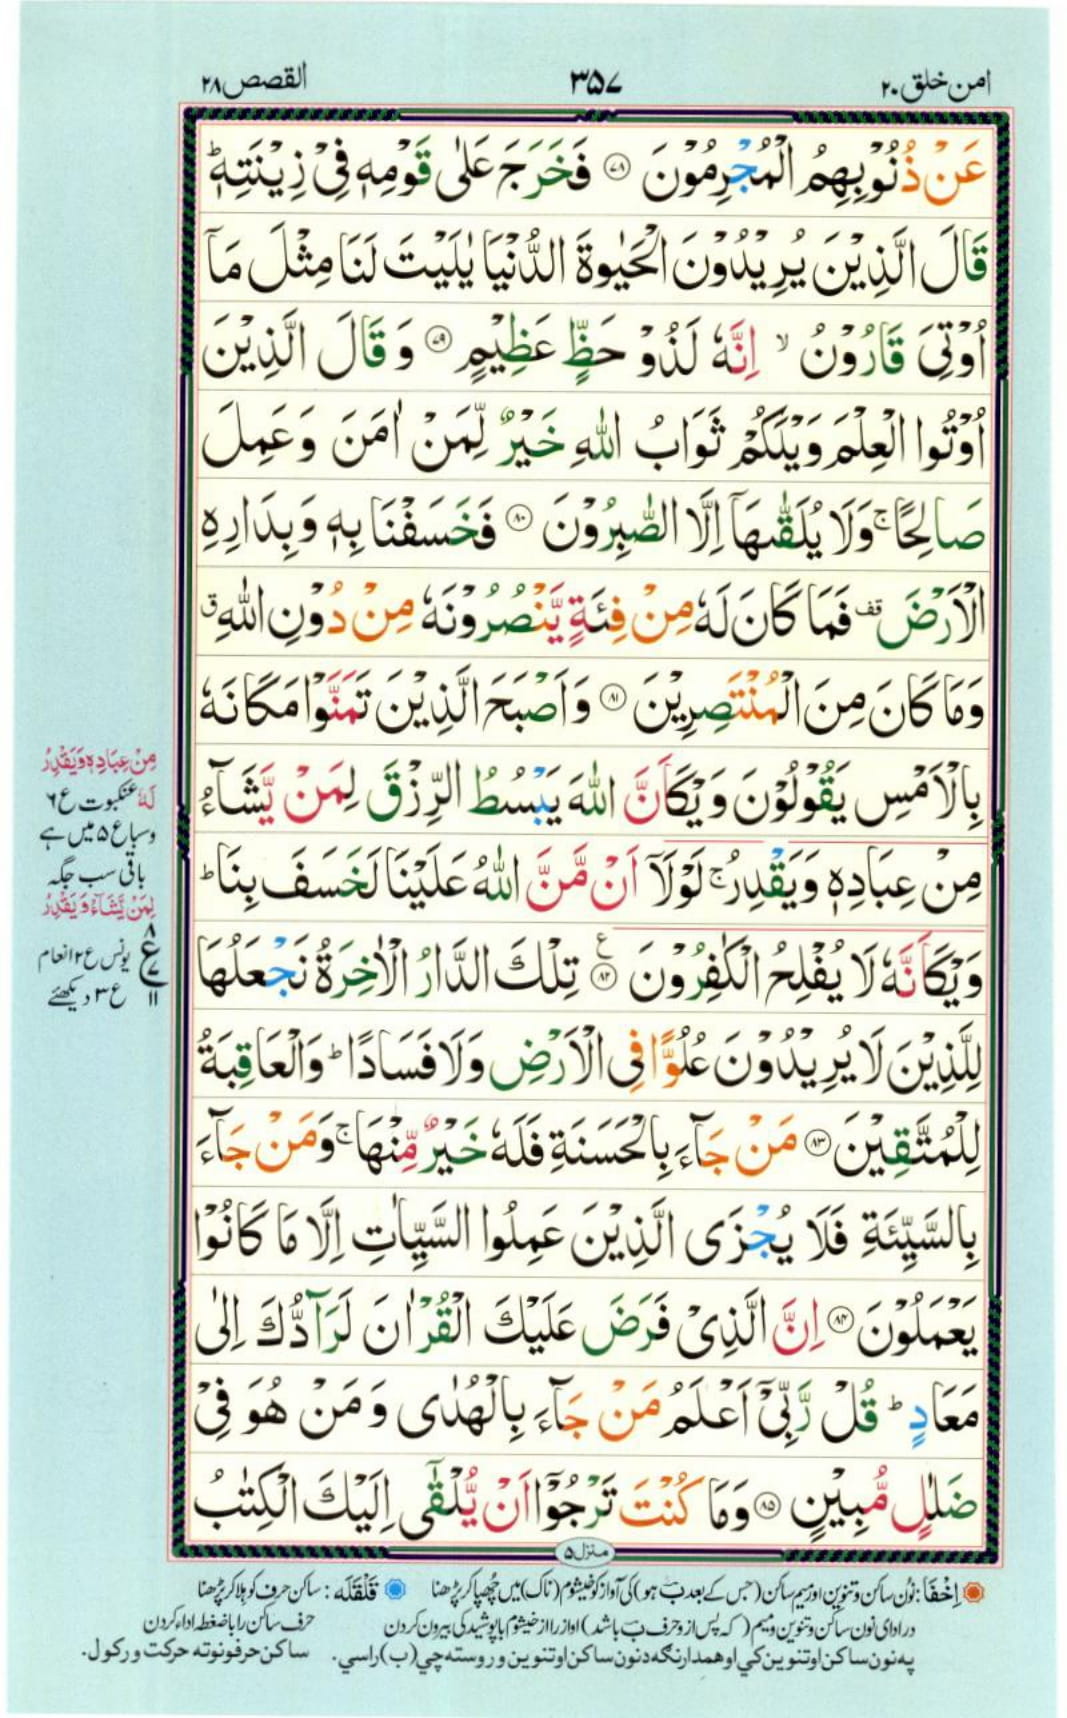 امن خلق ۲۰
۳۵۷
القصص ۲۸
عَنْ ذُنُوْبِهِمُ الْمُجْرِمُوْنَ ﴿۷۸﴾ فَخَرَجَ عَلٰى قَوْمِهٖ فِىْ زِيْنَتِهٖ ؕ
قَالَ الَّذِيْنَ يُرِيْدُوْنَ الْحَيٰوةَ الدُّنْيَا يٰلَيْتَ لَنَا مِثْلَ مَاۤ
اُوْتِىَ قَارُوْنُ ۙ اِنَّهٗ لَذُوْ حَظٍّ عَظِيْمٍ ﴿۷۹﴾ وَقَالَ الَّذِيْنَ
اُوْتُوا الْعِلْمَ وَيْلَكُمْ ثَوَابُ اللّٰهِ خَيْرٌ لِّمَنْ اٰمَنَ وَعَمِلَ
صَالِحًا ۚ وَلَا يُلَقّٰىهَاۤ اِلَّا الصّٰبِرُوْنَ ﴿۸۰﴾ فَخَسَفْنَا بِهٖ وَبِدَارِهِ
الْاَرْضَ قف فَمَا كَانَ لَهٗ مِنْ فِئَةٍ يَّنْصُرُوْنَهٗ مِنْ دُوْنِ اللّٰهِ ق
وَمَا كَانَ مِنَ الْمُنْتَصِرِيْنَ ﴿۸۱﴾ وَاَصْبَحَ الَّذِيْنَ تَمَنَّوْا مَكَانَهٗ
بِالْاَمْسِ يَقُوْلُوْنَ وَيْكَاَنَّ اللّٰهَ يَبْسُطُ الرِّزْقَ لِمَنْ يَّشَآءُ
مِنْ عِبَادِهٖ وَيَقْدِرُ ۚ لَوْلَاۤ اَنْ مَّنَّ اللّٰهُ عَلَيْنَا لَخَسَفَ بِنَا ؕ
وَيْكَاَنَّهٗ لَا يُفْلِحُ الْكٰفِرُوْنَ ﴿۸۲﴾ ع تِلْكَ الدَّارُ الْاٰخِرَةُ نَجْعَلُهَا
لِلَّذِيْنَ لَا يُرِيْدُوْنَ عُلُوًّا فِى الْاَرْضِ وَلَا فَسَادًا ؕ وَالْعَاقِبَةُ
لِلْمُتَّقِيْنَ ﴿۸۳﴾ مَنْ جَآءَ بِالْحَسَنَةِ فَلَهٗ خَيْرٌ مِّنْهَا ۚ وَمَنْ جَآءَ
بِالسَّيِّئَةِ فَلَا يُجْزَى الَّذِيْنَ عَمِلُوا السَّيِّاٰتِ اِلَّا مَا كَانُوْا
يَعْمَلُوْنَ ﴿۸۴﴾ اِنَّ الَّذِىْ فَرَضَ عَلَيْكَ الْقُرْاٰنَ لَرَآدُّكَ اِلٰى
مَعَادٍ ؕ قُلْ رَّبِّىْۤ اَعْلَمُ مَنْ جَآءَ بِالْهُدٰى وَمَنْ هُوَ فِىْ
ضَلٰلٍ مُّبِيْنٍ ﴿۸۵﴾ وَمَا كُنْتَ تَرْجُوْۤا اَنْ يُّلْقٰۤى اِلَيْكَ الْكِتٰبُ
منزل ۵
مِنْ عِبَادِهٖ وَيَقْدِرُ
لَهٗ عنکبوت ع ۶
وسبا ع ۵ میں ہے
باقی سب جگہ
لِمَنْ يَّشَآءُ وَيَقْدِرُ
۸
ع یونس ع ۲ انعام
۱۱ ع ۳ دیکھئے
اِخْفَا: نون ساکن وتنوین اور میم ساکن (جس کے بعد ب ہو) کی آواز کو خیشوم (ناک) میں چھپا کر پڑھنا قَلْقَلَه: ساکن حرف کو ہلا کر پڑھنا
در ادای نون ساکن وتنوین ومیم (که پس ازو حرف ب باشد) اواز را از خیشوم با پوشیدگی بیرون کردن حرف ساکن را با ضغط اداء کردن
په نون ساکن او تنوین کي او همدارنګه د نون ساکن او تنوین وروسته چي (ب) راسي. ساکن حرفونو ته حرکت ورکول.